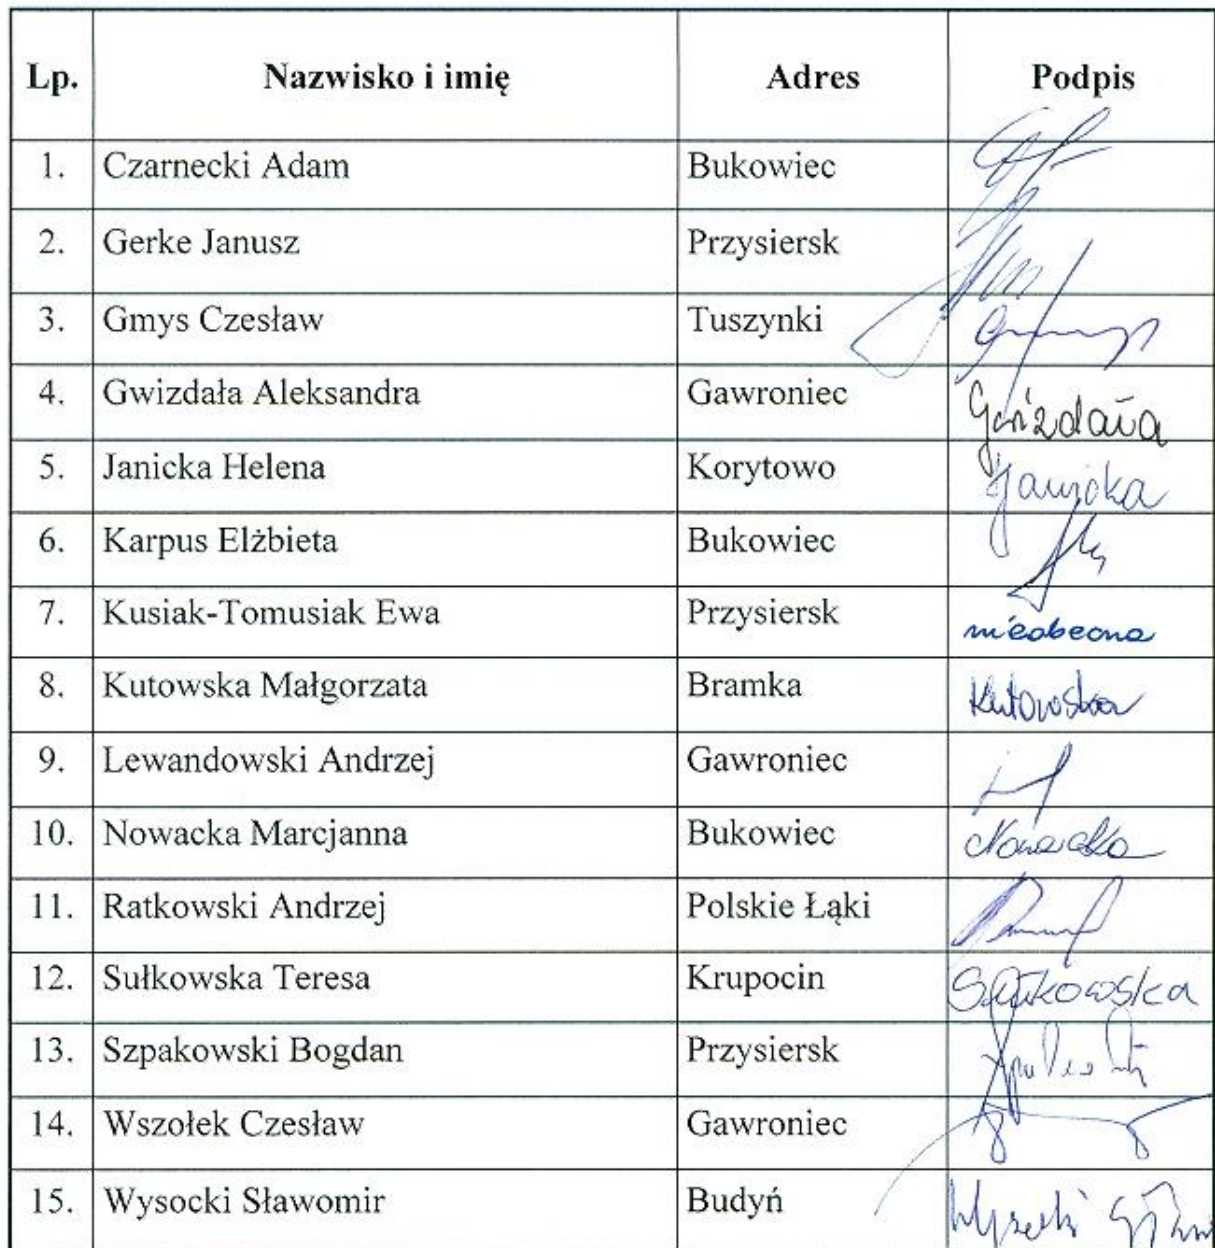 Lp. Nazwisko i imię Adres Podpis
1. Czarnecki Adam Bukowiec
2. Gerke Janusz Przysiersk
3. Gmys Czesław Tuszynki
4. Gwizdała Aleksandra Gawroniec Gwizdała
5. Janicka Helena Korytowo Janicka
6. Karpus Elżbieta Bukowiec
7. Kusiak-Tomusiak Ewa Przysiersk nieobecna
8. Kutowska Małgorzata Bramka Kutowska
9. Lewandowski Andrzej Gawroniec
10. Nowacka Marcjanna Bukowiec Nowacka
11. Ratkowski Andrzej Polskie Łąki
12. Sułkowska Teresa Krupocin Sułkowska
13. Szpakowski Bogdan Przysiersk
14. Wszołek Czesław Gawroniec
15. Wysocki Sławomir Budyń Wysocki